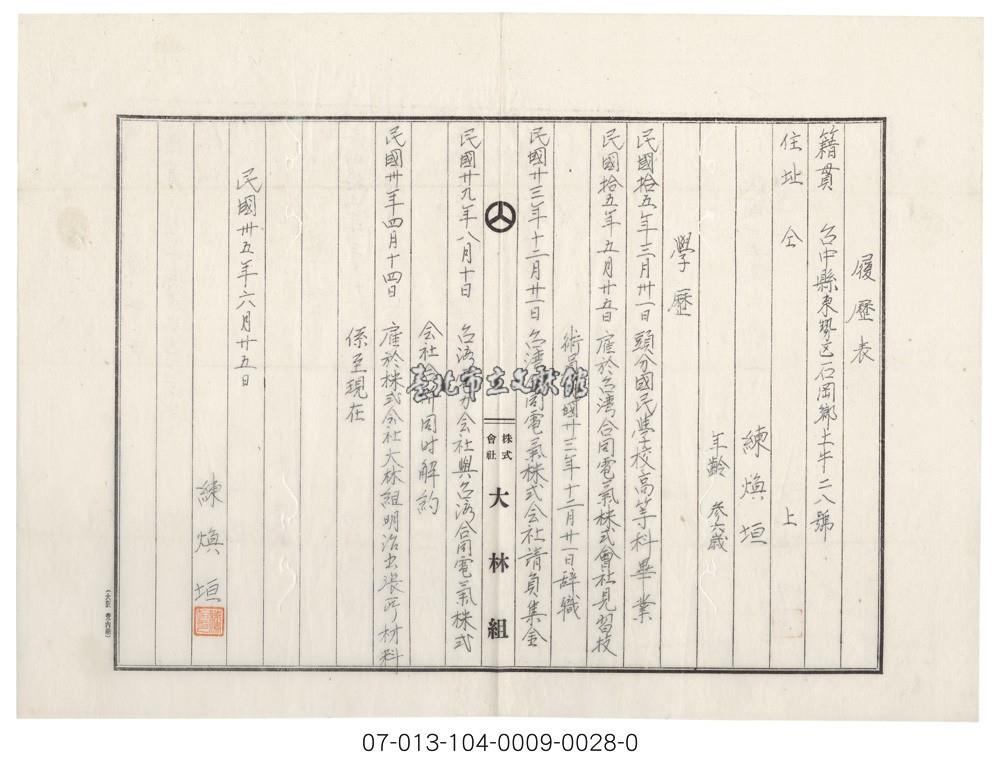 履歷表
籍貫 台中縣東勢区石岡鄉土牛二八號
住址 仝 上
練煥垣
年齡 参六歲
學歷
民國拾五年三月卅一日 頭分國民學校高等科畢業
民國拾五年五月廿五日 雇於台湾合同電氣株式會社見習技
術員 國廿三年十二月廿一日辞職
民國廿三年十二月廿一日 台湾 同電氣株式会社請負集金
株式會社 大林組
民國廿九年八月十日 台湾 力会社與台湾合同電氣株式
会社 併同时解約
民國卅年四月十四日 雇於株式会社大林組明治出張所材料
係至現在
民國卅五年六月廿五日
練煥垣
臺北市立文獻館
07-013-104-0009-0028-0